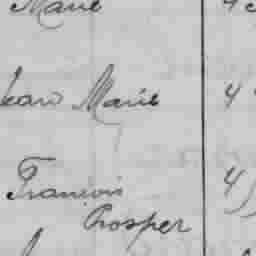 Marie
Jean Marie 4
François 4
Prosper